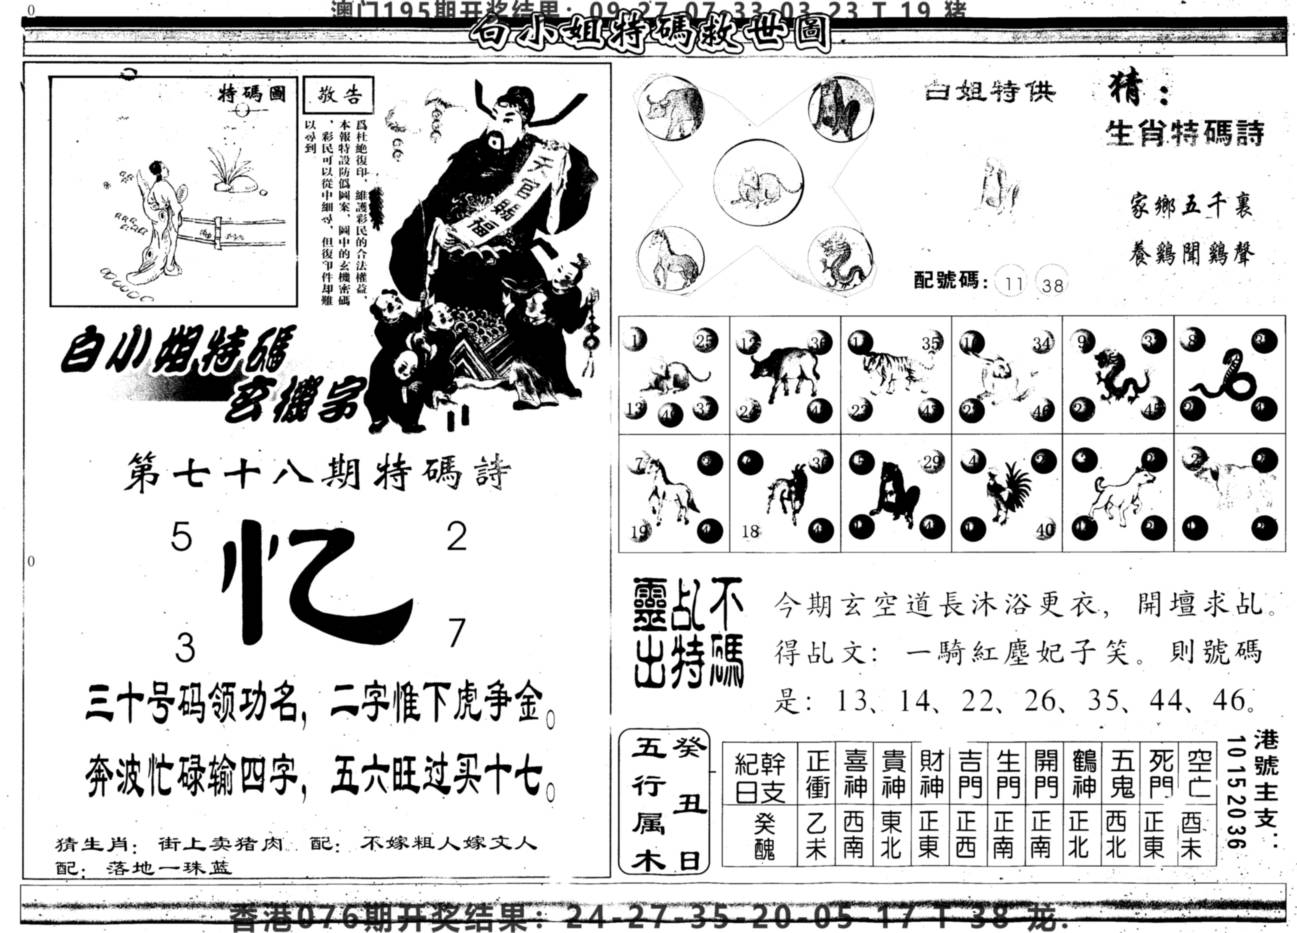 澳门195期开奖结果：09-27-07-33-03-23 T 19 猪
白小姐特碼救世圖
特碼圖
敬告
爲杜絶復印，維護彩民的合法權益，
本報特設防僞圖案，圖中的玄機密碼
，彩民可以從中細尋，但復印件却難
以尋到
天官賜福
白小姐特碼
玄機字
第七十八期特碼詩
5 2
忆
3 7
三十号码领功名，二字惟下虎争金。
奔波忙碌输四字，五六旺过买十七。
猜生肖：街上卖猪肉 配：不嫁粗人嫁文人
配：落地一珠蓝
白姐特供
配號碼：11 38
猜：
生肖特碼詩
家鄉五千裏
養鷄聞鷄聲
1 25
35
34
9
8
13 37
46
45
7
29
19
18
40
不碼
乩特
靈出
今期玄空道長沐浴更衣，開壇求乩。
得乩文：一騎紅塵妃子笑。則號碼
是：13、14、22、26、35、44、46。
癸丑日
五行属木
幹支紀日 正衝 喜神 貴神 財神 吉門 生門 開門 鶴神 五鬼 死門 空亡
癸醜 乙未 西南 東北 正東 正西 正南 正南 正北 西北 正東 酉未
港號主支：
10152036
香港076期开奖结果：24-27-35-20-05-17 T 38 龙.